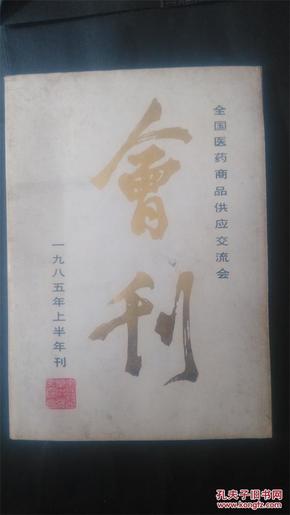 全国医药商品供应交流会
會刊
一九八五年上半年刊
孔夫子旧书网
www.kongfz.com